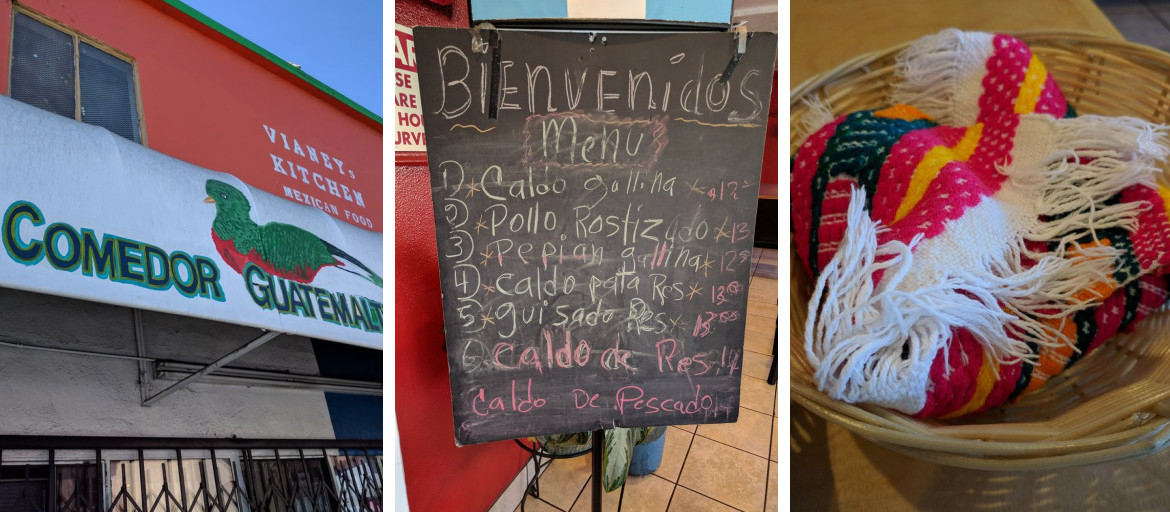 VIANEYS
KITCHEN
MEXICAN FOOD
COMEDOR GUATEMALT
BIENVENIDOS
Menu
1)*Caldo gallina
2)*Pollo Rostizado *13
3)*Pepian gallina* 12
4)*caldo pata Res* 13.00
5)*guisado Res* 13.00
6 Caldo de Res 14
Caldo De Pescado 14
SE
ARE
HO